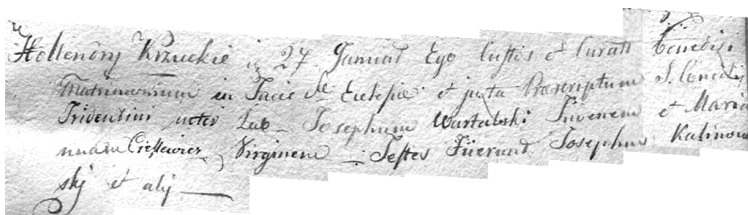 Hollendry Krzuckie in 27 Januar Ego Custos et Curatt Benedixi
Matrimonium in Facie Sae Eclesiæ et juxta Præscriptum S. Concilij
Tridentini inter Lab Josephum Wartalski Juvenem et Maria
nnam Cieslewicz Virginem Testes Füerund Josephus Kalinow
skj et alij